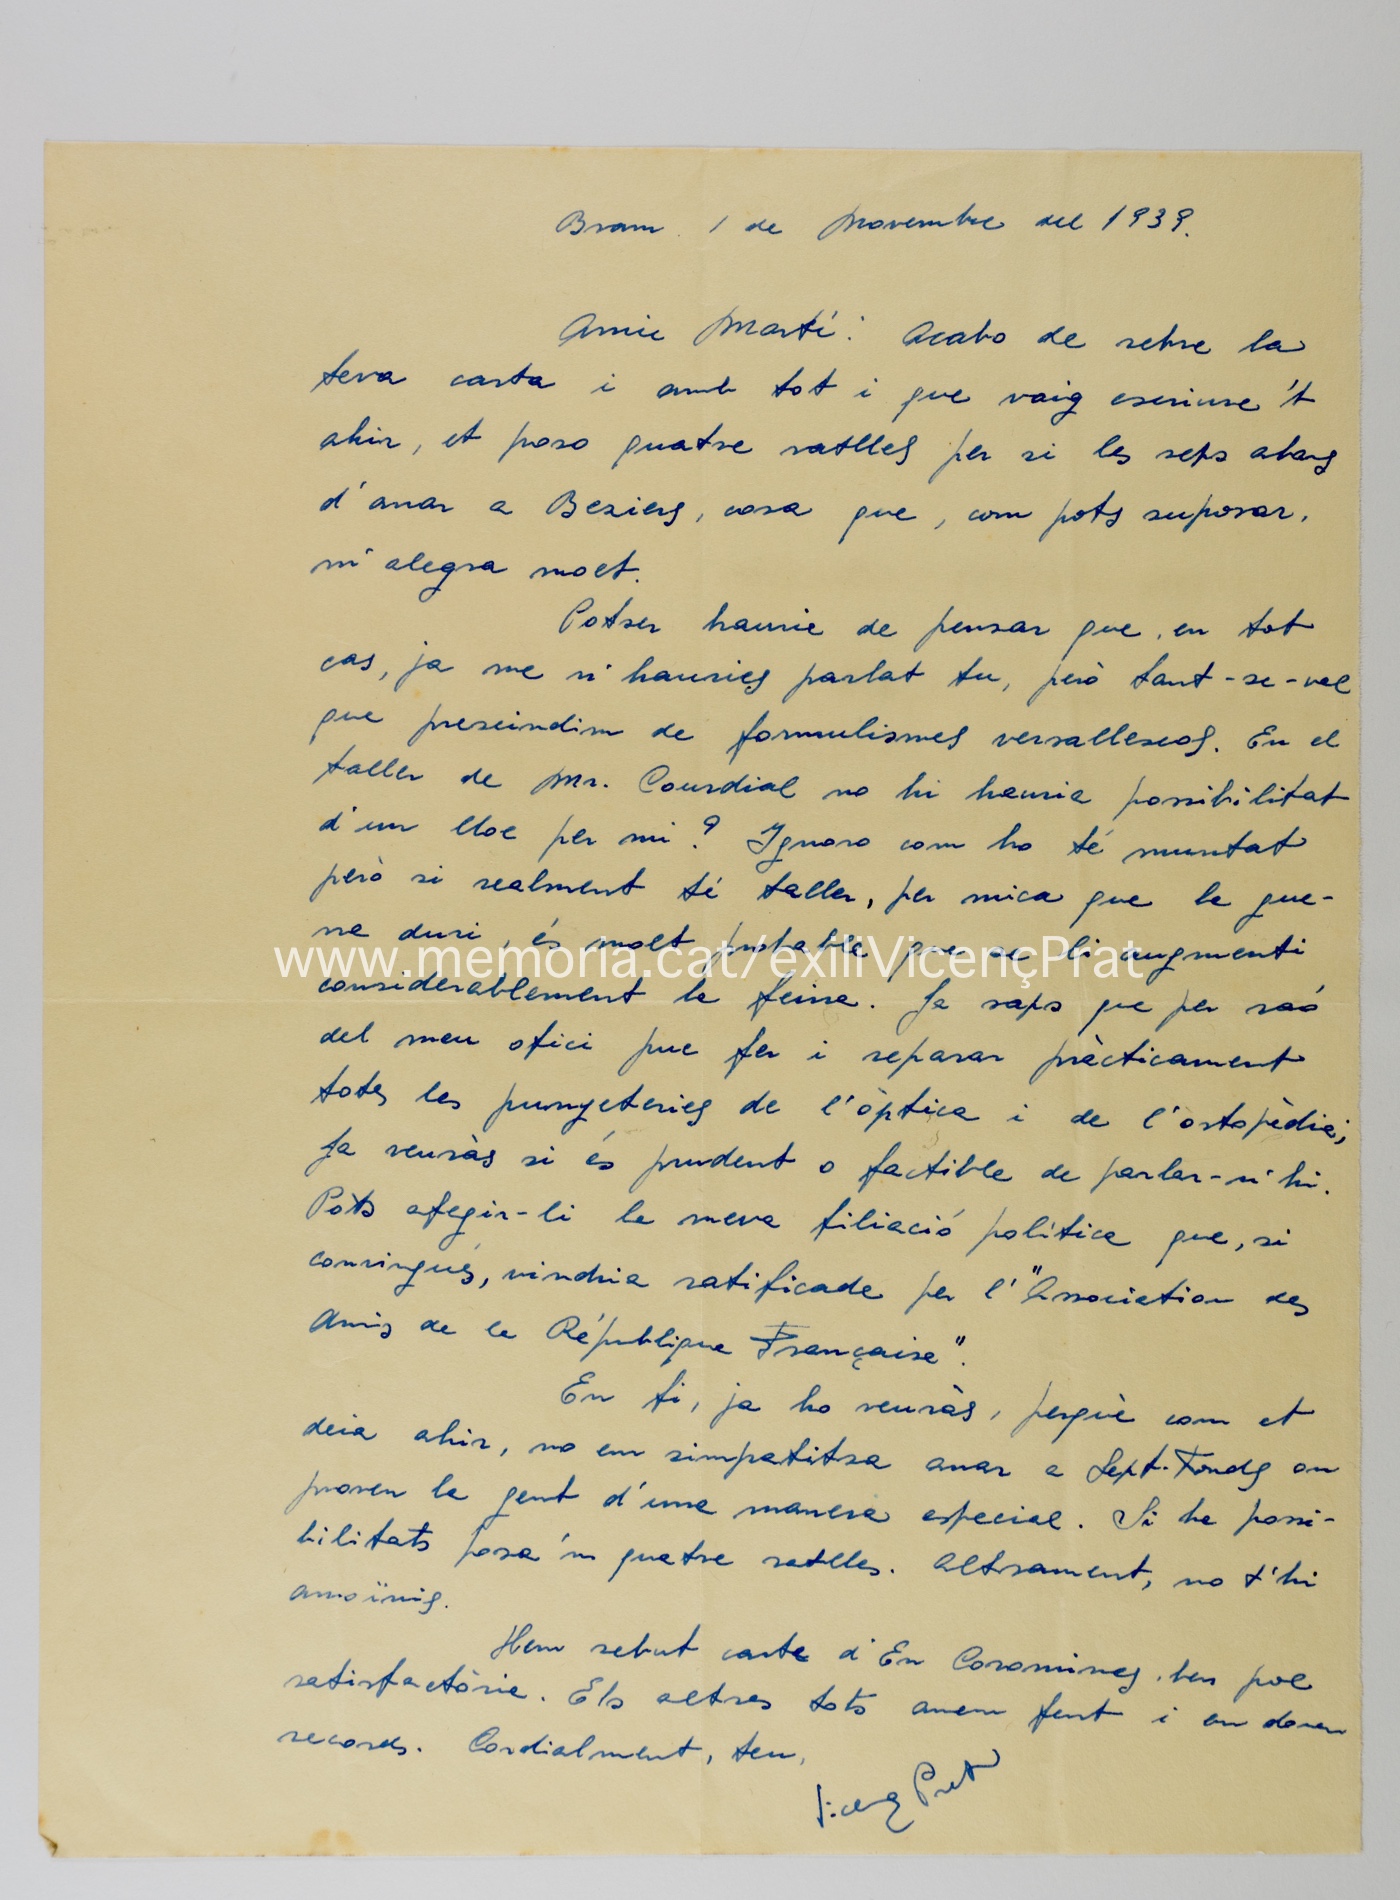 Bram. 1 de Novembre del 1939.
Amic Martí: Acabo de rebre la
teva carta i amb tot i que vaig escriure't
ahir, et poso quatre ratlles per si les reps abans
d'anar a Beziers, cosa que, com pots suposar,
m'alegra molt.
Potser hauria de pensar que, en tot
cas, ja me n'hauries parlat tu, però tant-se-val
que prescindim de formulismes versallescos. En el
taller de Mr. Courdial no hi hauria possibilitat
d'un lloc per mi? Ignoro com ho té muntat
però si realment té taller, per mica que la gue-
rra duri, és molt probable que se li augmenti
www.memoria.cat/exiliVicençPrat
considerablement la feina. Ja saps que per raó
del meu ofici puc fer i reparar pràcticament
totes les punyeteries de l'òptica i de l'ortopèdia;
Ja veuràs si és prudent o factible de parlar-n'hi.
Pots afegir-li la meva filiació política que, si
convingués, vindria ratificada per l'"Association des
Amis de la République Française".
En fi, ja ho veuràs, perquè com et
deia ahir, no em simpatitza anar a Sept-Fonds on
proven la gent d'una manera especial. Si ha possi-
bilitats posa'm quatre ratlles. Altrament, no t'hi
amoïnis.
Hem rebut carta d'En Coromines, ben poc
satisfactòria. Els altres tots anem fent i en donen
records. Cordialment, teu,
Vicenç Prat